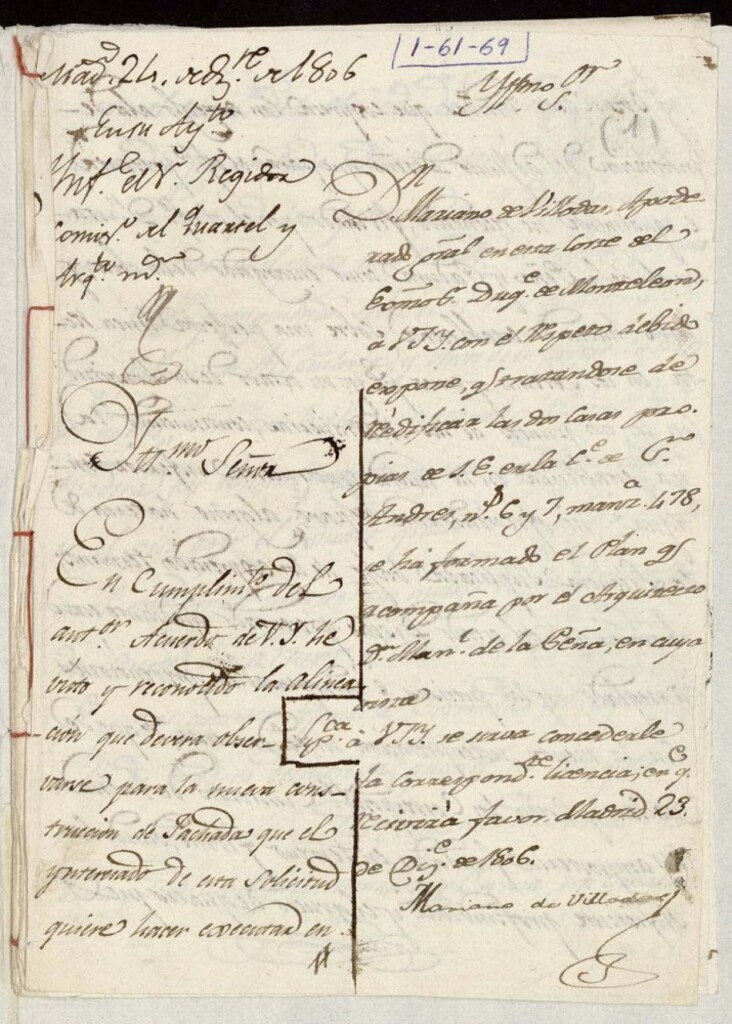 1-61-69
(1)
Mad.d 24. de D.re de 1806
En su Ay.to
Inf.e el S.r Regidor
Comis.o del Quartel y
Arq.to m.r
Yllmo Señor
En Cumplim.to del
ant.or Acuerdo de V.Y. he
visto y reconocido la alinea
cion que devera obser-
varse para la nueva cons-
truccion de Fachada que el
ynteresado de esta Solicitud
quiere hacer executar en
Yllmo S.or
D.n Mariano de Villodas, Apode-
rado gral en esta Corte del
Exmo S. Duq.e de Monteleon,
a VSY. con el respeto debido
expone, q.e tratandose de
reedificar las dos Casas pro-
pias de S. E. en la C.e de S.n
Andres, n.os 6 y 7, manz.a 478,
se ha formado el Plan q.e
acompaña por el Arquitecto
D.n Man.l de la Peña, en cuya
vista
Sup.ca à VSY. se sirva concederle
la correspond.te licencia; en q.e
recivirà favor. Madrid 23.
de Diz.e de 1806.
Mariano de Villodas